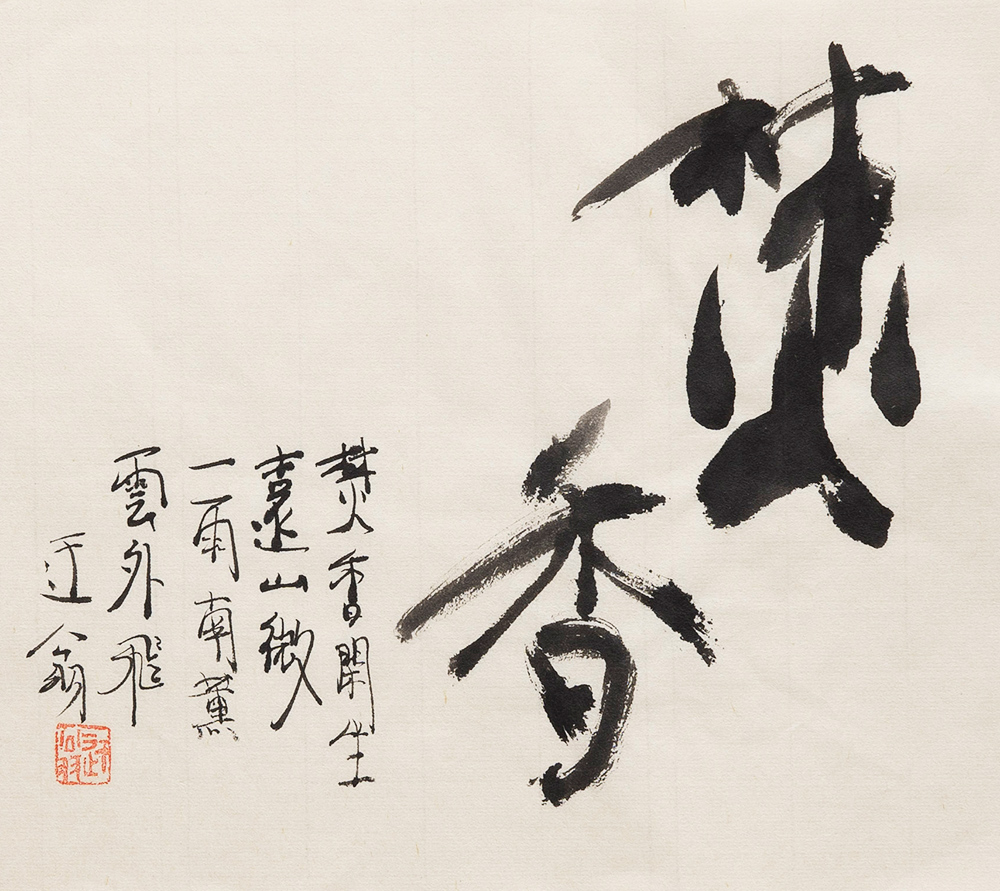 焚香
焚香閑坐
遠山微
一雨南薰
雲外飛
迂翁